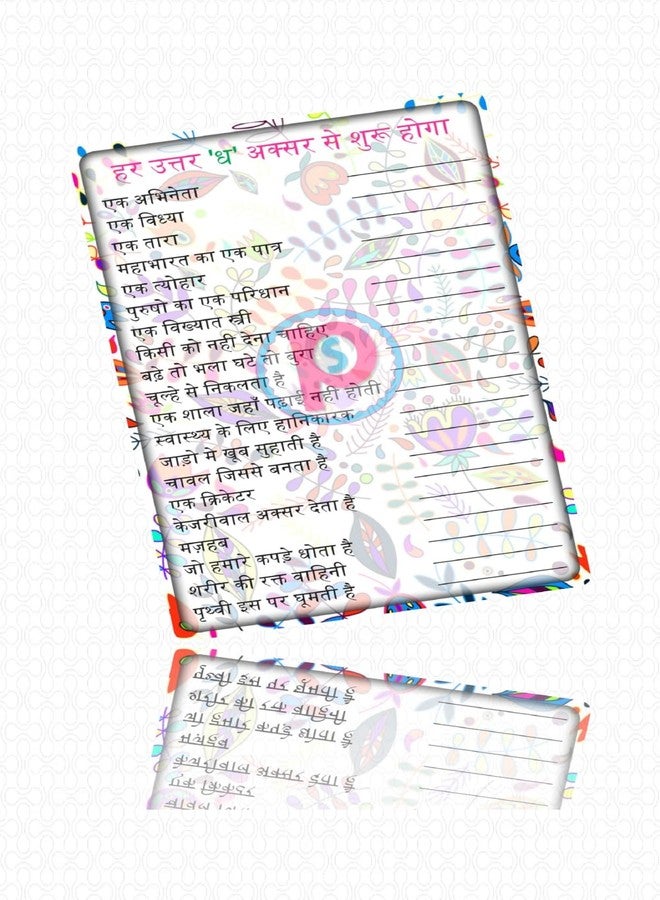 हर उत्तर 'ध' अक्सर से शुरू होगा
एक अभिनेता
एक विध्या
एक तारा
महाभारत का एक पात्र
एक त्योहार
पुरुषो का एक परिधान
एक विख्यात स्त्री
किसी को नही देना चाहिए
बढ़े तो भला घटे तो बुरा
चूल्हे से निकलता है
एक शाला जहाँ पढ़ाई नही होती
स्वास्थ्य के लिए हानिकारक
जाड़ो मे खूब सुहाती है
चावल जिससे बनता है
एक क्रिकेटर
केजरीवाल अक्सर देता है
मज़हब
जो हमार कपड़े धोता है
शरीर की रक्त वाहिनी
पृथ्वी इस पर घूमती है
PS